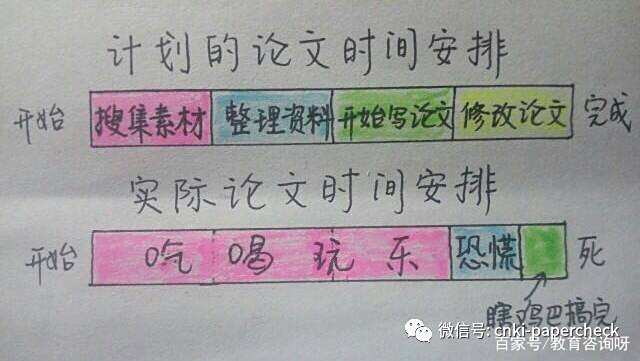 计划的论文时间安排
开始 搜集素材 整理资料 开始写论文 修改论文 完成
实际论文时间安排
开始 吃喝玩乐 恐慌 死
瞎鸡巴搞完
微信号: cnki-papercheck
百家号/教育咨询呀